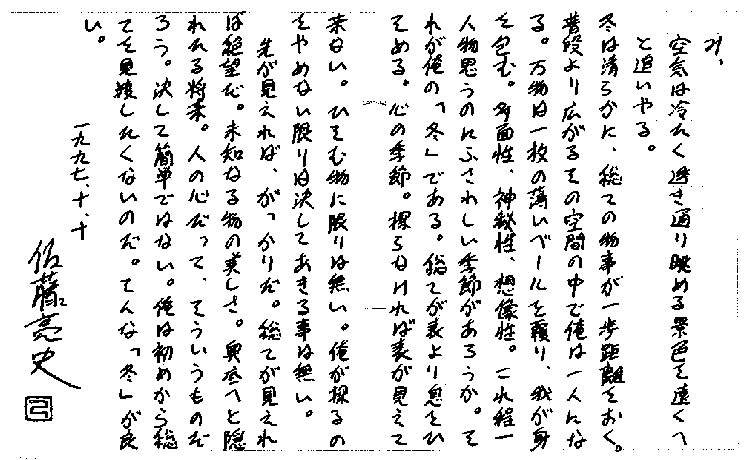 み、
空気は冷たく透き通り眺める景色を遠くへ
と追いやる。
冬は清らかに、総ての物事が一歩距離をおく。
普段より広がるその空間の中で俺は一人にな
る。万物は一枚の薄いベールを覆り、我が身
を包む。多面性、神秘性、想像性。これ程一
人物思うのにふさわしい季節があろうか。そ
れが俺の「冬」である。総てが表より息をひ
そめる。心の季節。探らなければ表が見えて
来ない。ひそむ物に限りは無い。俺が探るの
をやめない限りは決してあきる事は無い。
先が見えれば、がっかりだ。総てが見えれ
ば絶望だ。未知なる物の美しさ。奥底へと隠
れたる将来。人の心だって、そういうものだ
ろう。決して簡単ではない。俺は初めから総
てを見渡したくないのだ。そんな「冬」が良
い。
一九九七、十、十
佐藤亮史